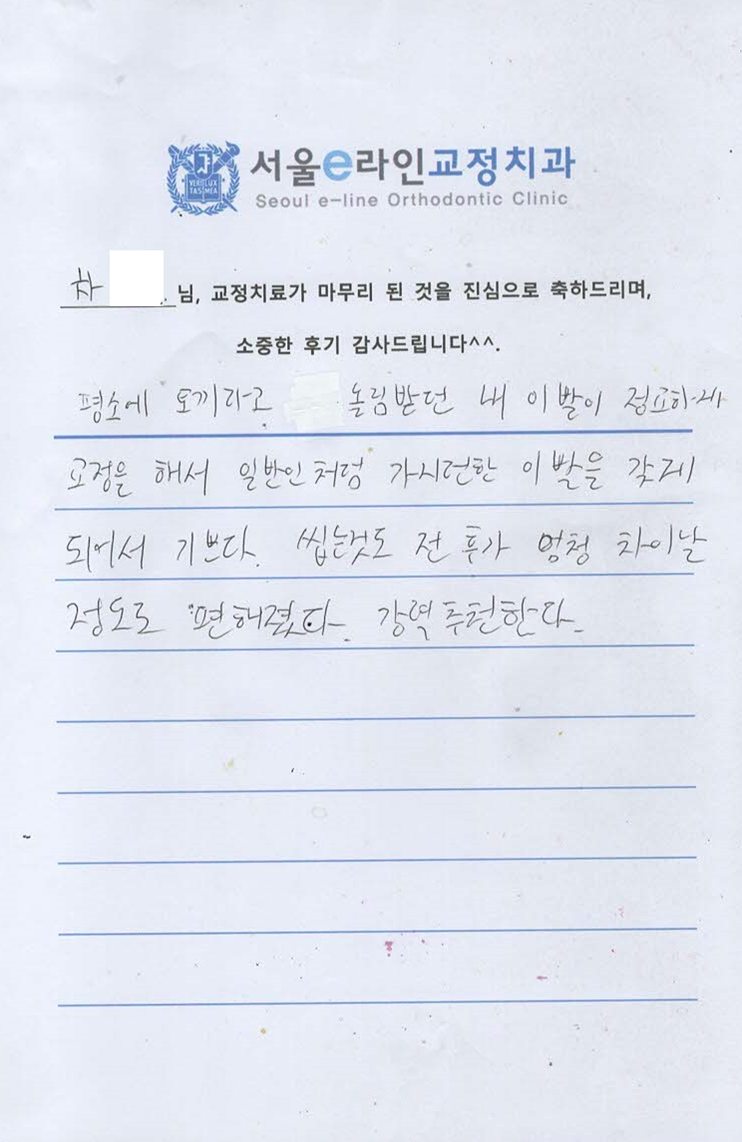 VERI LUX TAS MEA
서울e라인교정치과
Seoul e-line Orthodontic Clinic
차 님, 교정치료가 마무리 된 것을 진심으로 축하드리며,
소중한 후기 감사드립니다^^.
평소에 토끼라고 놀림받던 내 이빨이 정교하게
교정을 해서 일반인처럼 가지런한 이빨을 갖게
되어서 기쁘다. 씹는것도 전 후가 엄청 차이날
정도로 편해졌다. 강력추천한다.